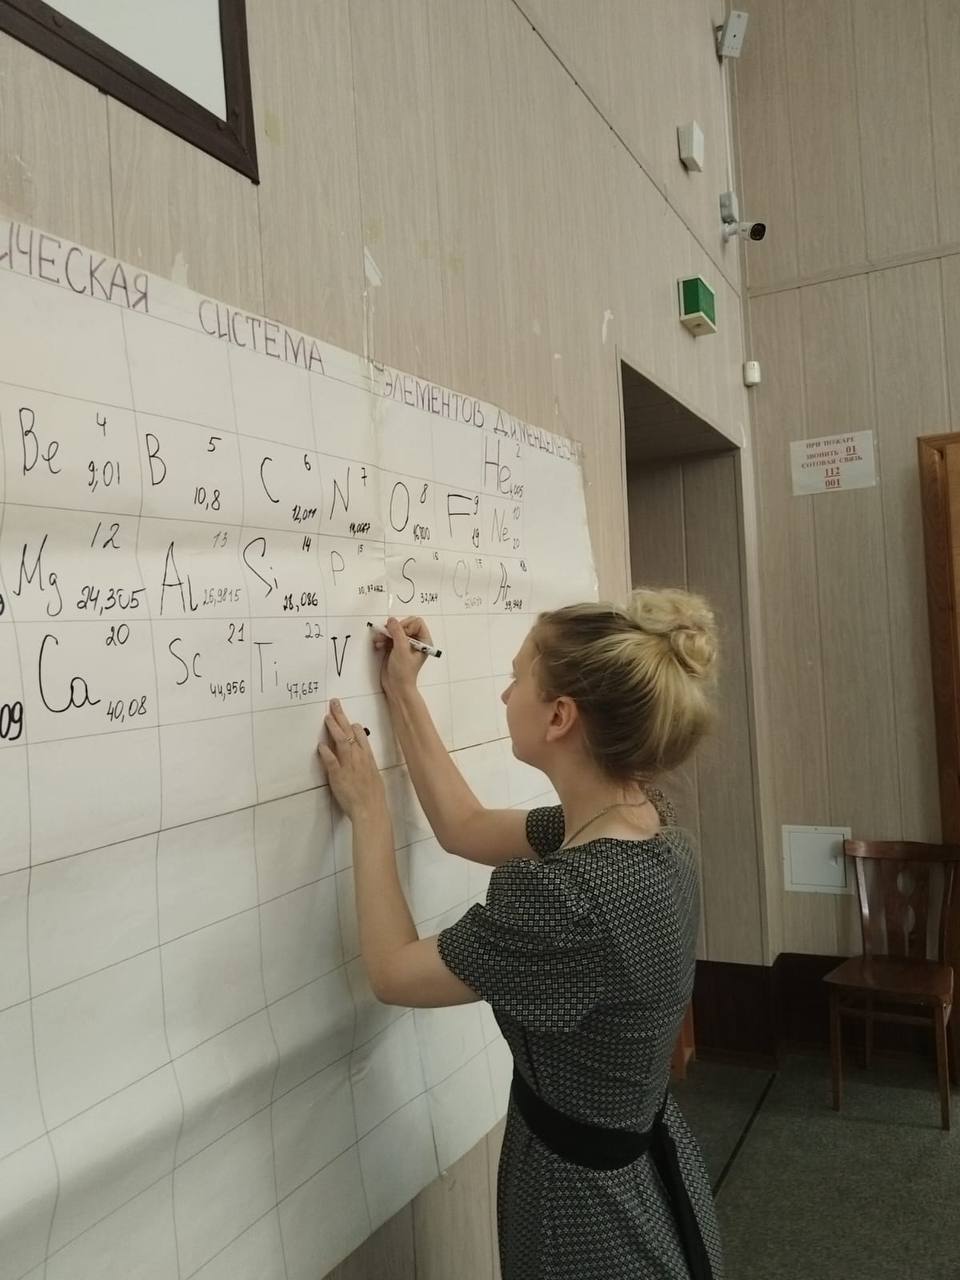 ИЧЕСКАЯ СИСТЕМА ЭЛЕМЕНТОВ Д.И.МЕНДЕЛЕЕВА
He 2 4,005
Be 4 9,01
B 5 10,8
C 6 12,011
N 7 14,0067
O 8
F 9 19
Ne 10 20
Mg 12 24,305
Al 13 26,9815
Si 14 28,086
P 15
S 16 32,064
Cl 17
Ar 18 39,948
09
Ca 20 40,08
Sc 21 44,956
Ti 22 47,687
V
ПРИ ПОЖАРЕ
ЗВОНИТЬ - 01
СОТОВАЯ СВЯЗЬ
112
001